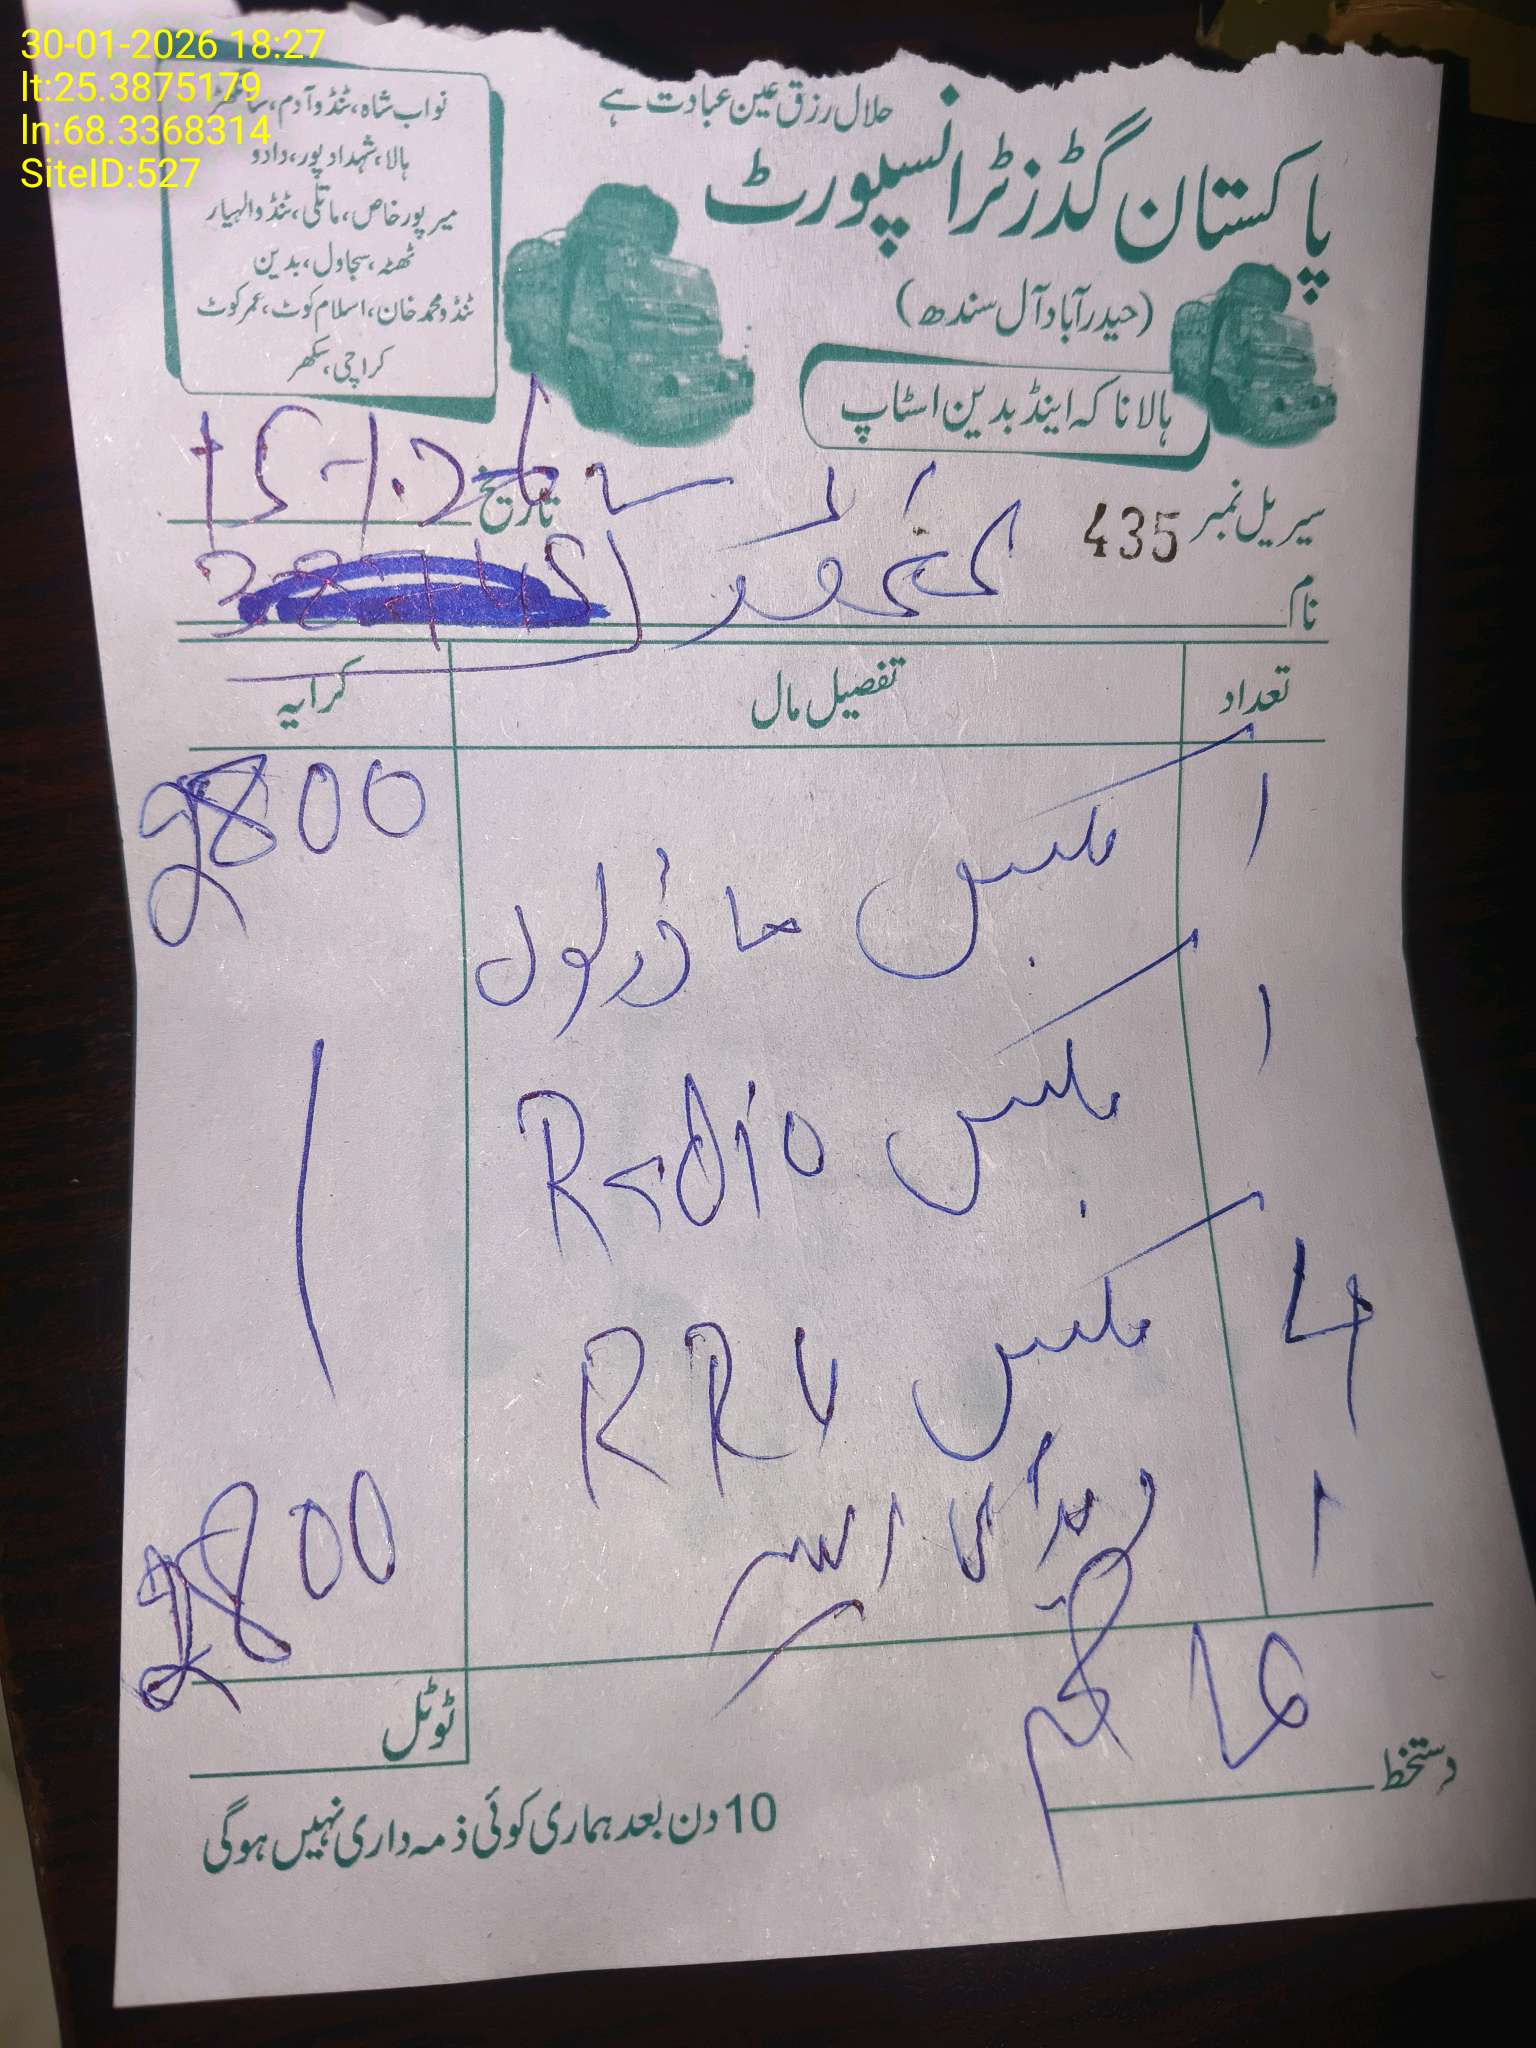 30-01-2026 18:27
lt:25.3875179
ln:68.3368314
SiteID:527
حلال رزق عین عبادت ہے
پاکستان گڈز ٹرانسپورٹ
(حیدرآباد آل سندھ)
ہالا ناکہ اینڈ بدین اسٹاپ
نواب شاہ، ٹنڈو آدم، سانگھڑ
ہالا، شہداد پور، دادو
میرپور خاص، ماتلی، ٹنڈوالہیار
ٹھٹہ، سجاول، بدین
ٹنڈو محمد خان، اسلام کوٹ، عمر کوٹ
کراچی، سکھر
سیریل نمبر 435
تاریخ 15-1-26
نام
تعداد تفصیل مال کرایہ
1 بکس ماڈیول 2800
1 بکس Radio
4 بکس RRU
1
2800
ٹوٹل
دستخط
10 دن بعد ہماری کوئی ذمہ داری نہیں ہوگی